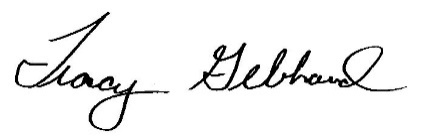 Tracy Gebhard